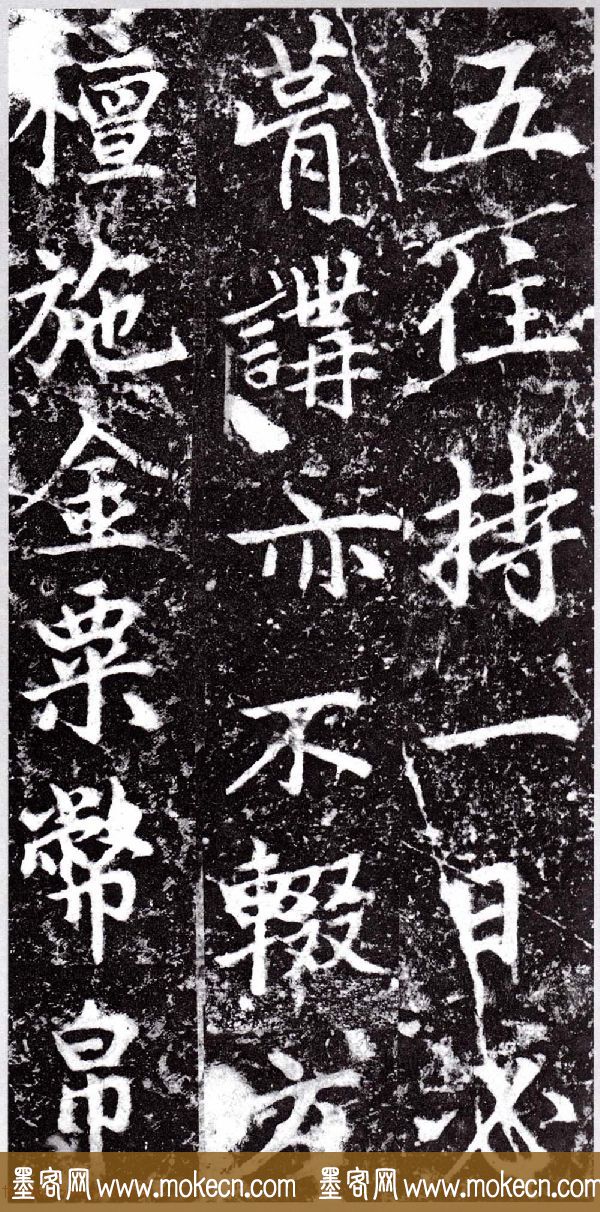 五住持一日必
葺講亦不輟方
檀施金粟幣帛
墨客网 www.mokecn.com 墨客网 www.mokecn.com